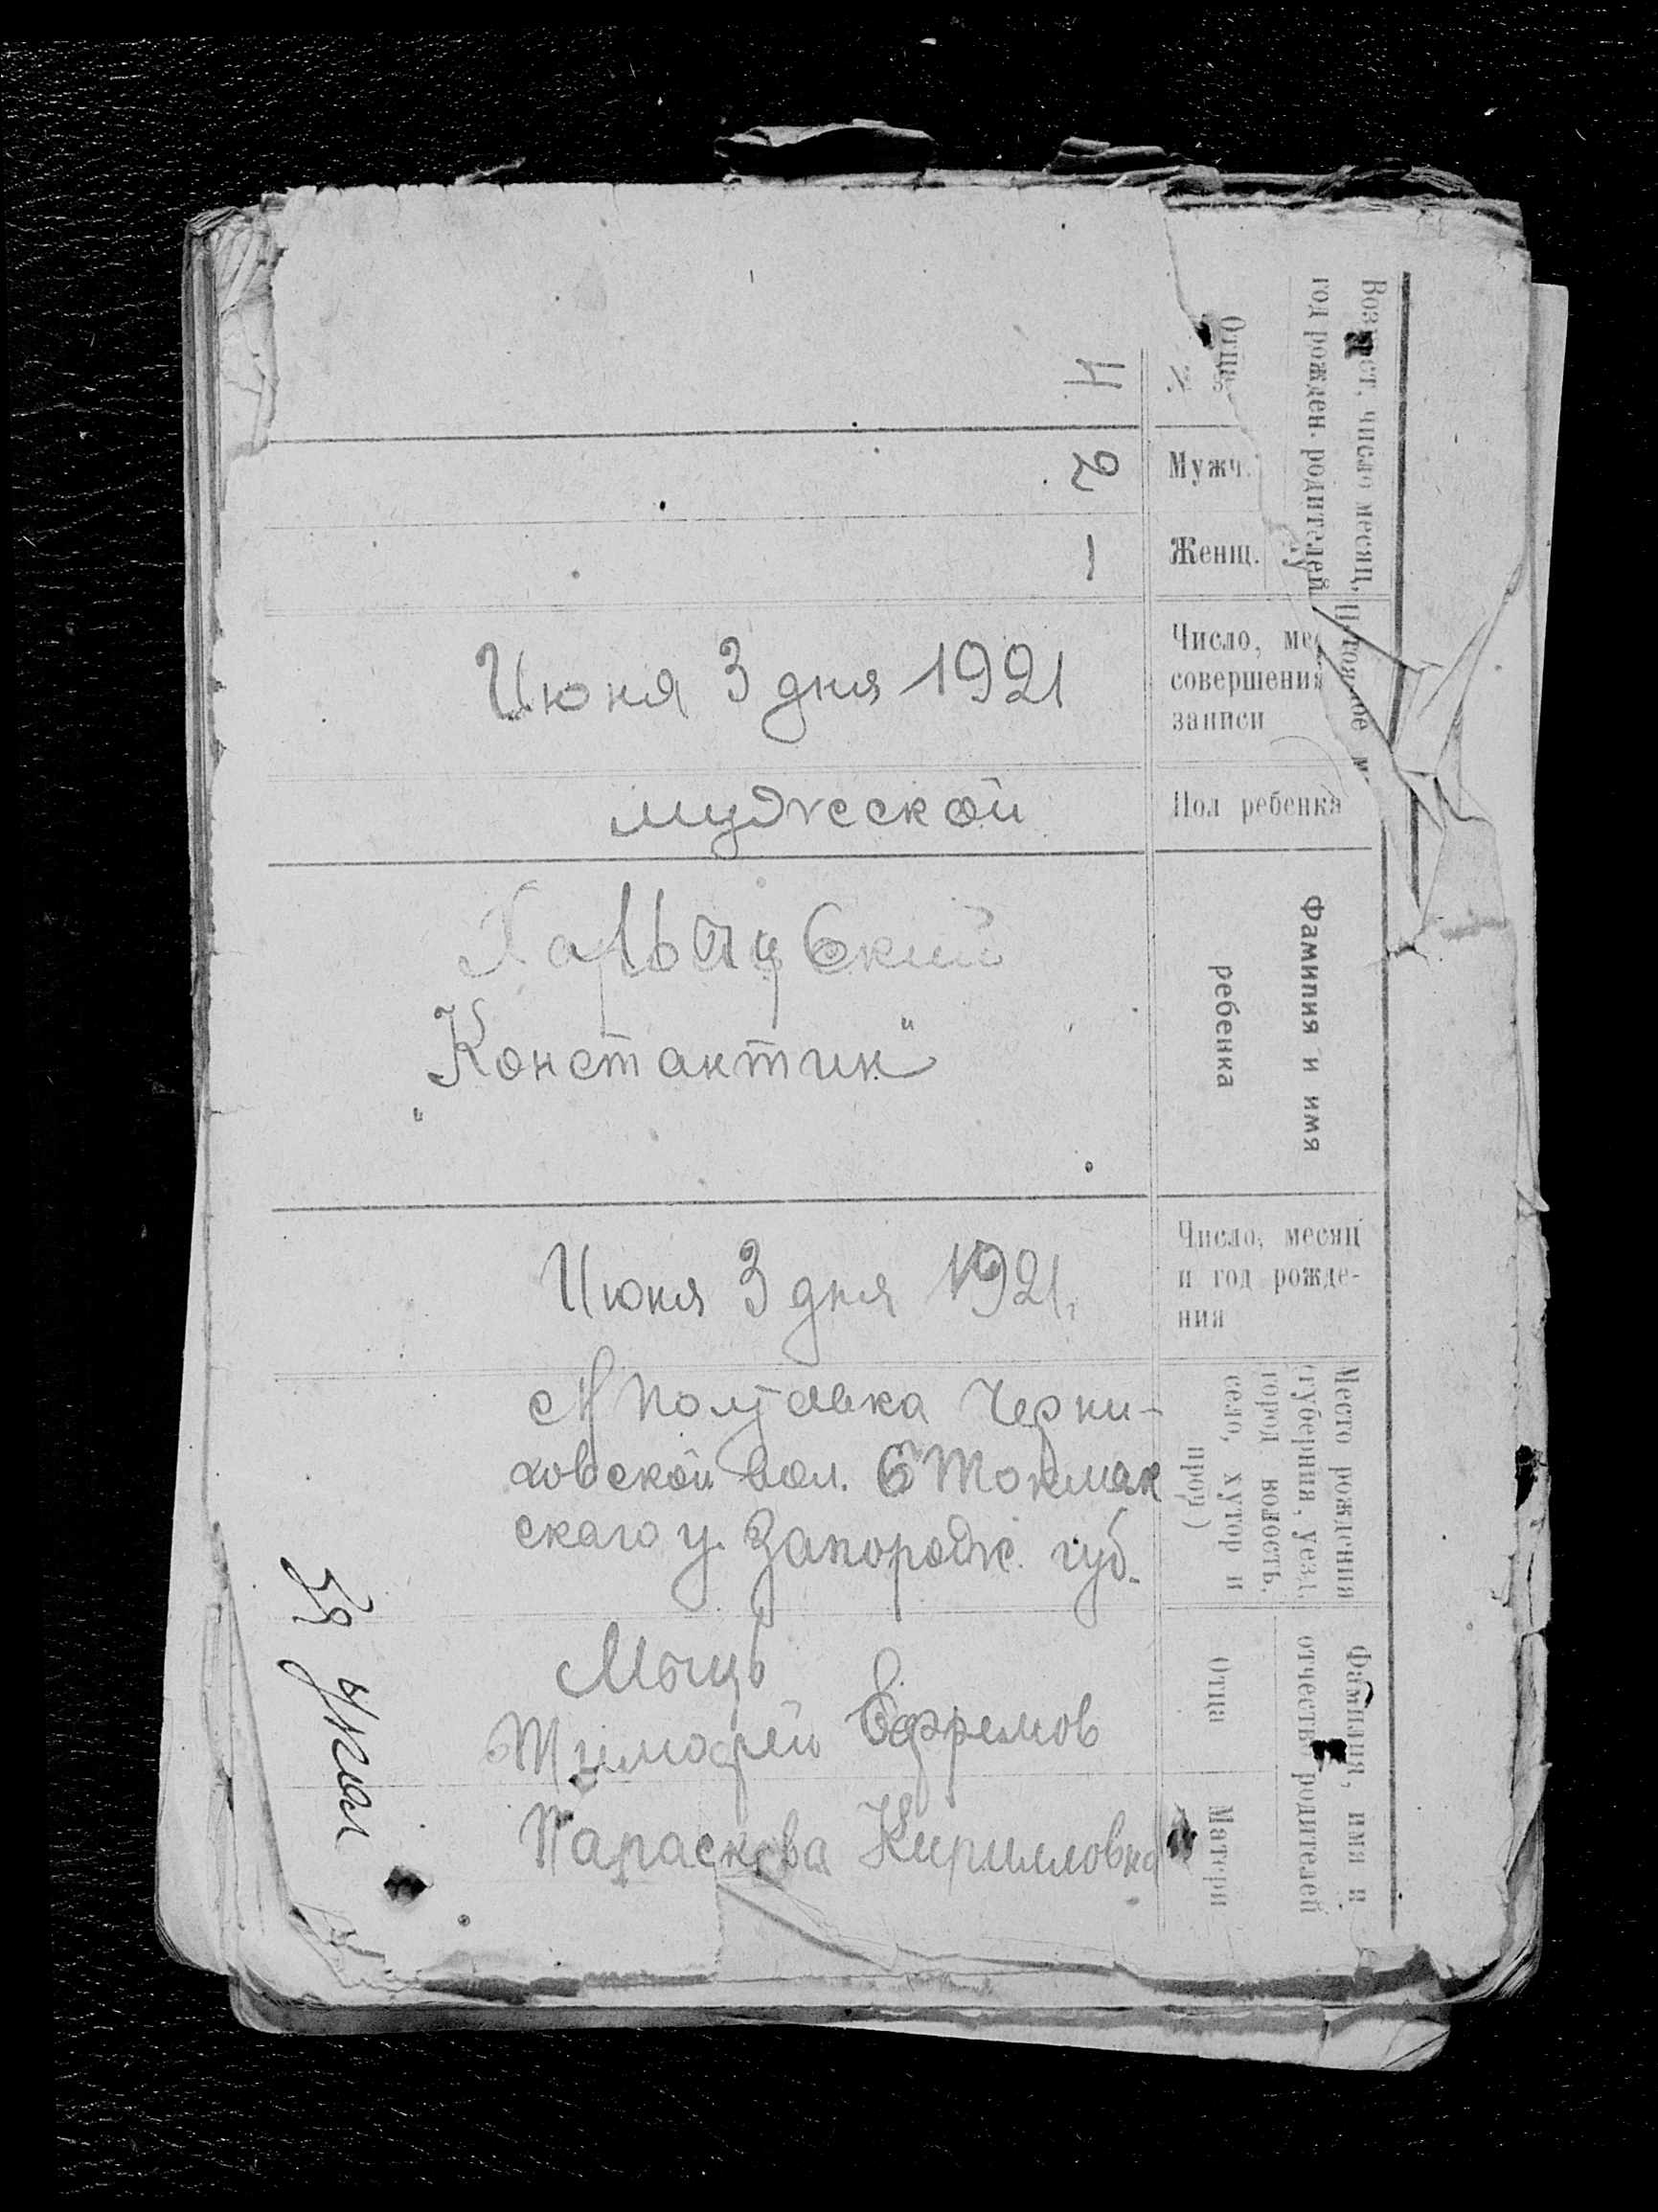 Возраст, число месяц,
год рожден. родителей
Отца
4
2
Мужч.
1
Женщ.
Июня 3 дня 1921
Число, мес
совершения
записи
мужеской
Пол ребенка
Константин
"Константин"
Фамилия и имя
ребенка
Июня 3 дня 1921.
Число, месяц
и год рожде-
ния
Полтавка Черни-
говской вол. Б Токмак
скаго у. Запорож. губ.
Место рождения
(губерния, уезд,
город волость,
село, хутор и
проч)
Тимофей Ефремов
Фамилия, имя и
отчество родителей
Отца
Параскева Кирилловна
Матери